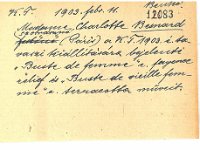 K.T. 1903. febr. 11.
12083
Madame Charlotte Besnard
(Paris) a K.T. 1903. i. ta-
vaszi kiállitására bejelenté
„Buste de femme” c. fayence
relief és „Buste de vieille fem-
me” c. terracotta művét.